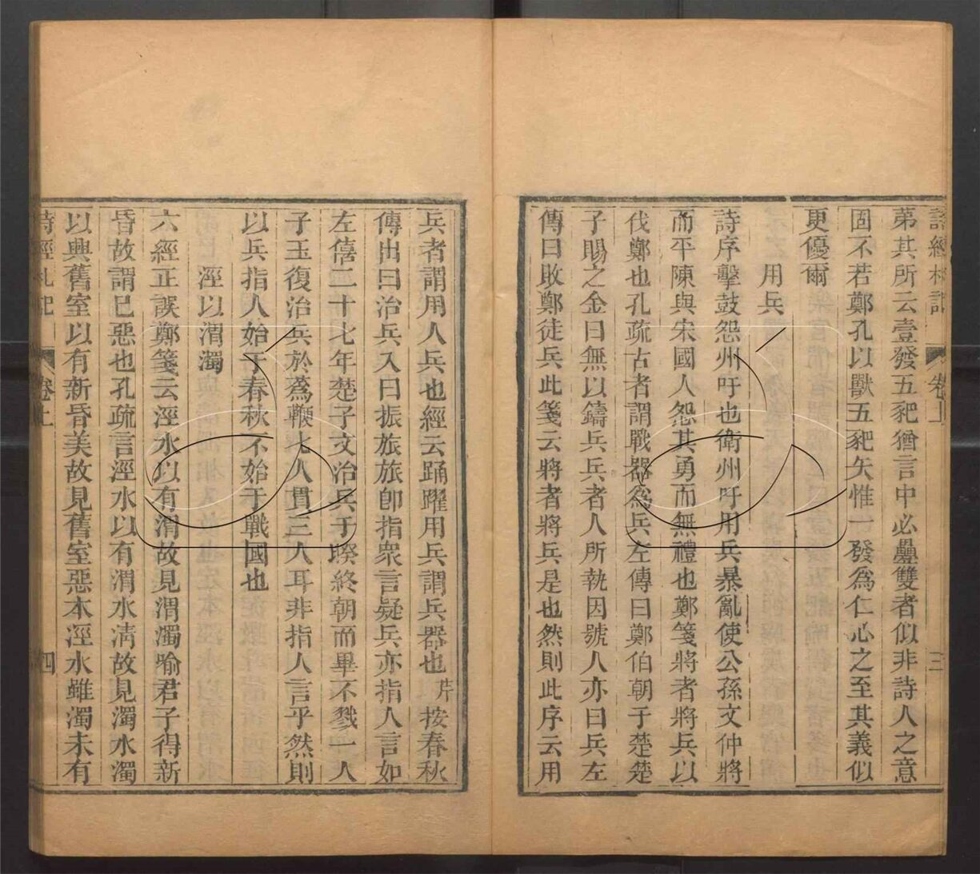 詩經札記
卷上
三
第其所云壹發五豝猶言中必疊雙者似非詩人之意
固不若鄭孔以獸五豝矢惟一發爲仁心之至其義似
更優爾
用兵
詩序擊鼓怨州吁也衛州吁用兵暴亂使公孫文仲將
而平陳與宋國人怨其勇而無禮也鄭箋將者將兵以
伐鄭也孔疏古者謂戰器爲兵左傳曰鄭伯朝于楚楚
子賜之金曰無以鑄兵兵者人所執因號人亦曰兵左
傳曰敗鄭徒兵此箋云將者將兵是也然則此序云用
兵者謂用人兵也經云踊躍用兵謂兵器也片按春秋
傳出曰治兵入曰振旅旅卽指衆言疑兵亦指人言如
左僖二十七年楚子文治兵于睽終朝而畢不戮一人
子玉復治兵於蒍鞭七人貫三人耳非指人言乎然則
以兵指人始于春秋不始于戰國也
涇以渭濁
六經正誤鄭箋云涇水以有渭故見渭濁喻君子得新
昏故謂已惡也孔疏言涇水以有渭水淸故見濁水濁
以興舊室以有新昏美故見舊室惡本涇水雖濁未有
詩經札記
卷上
四